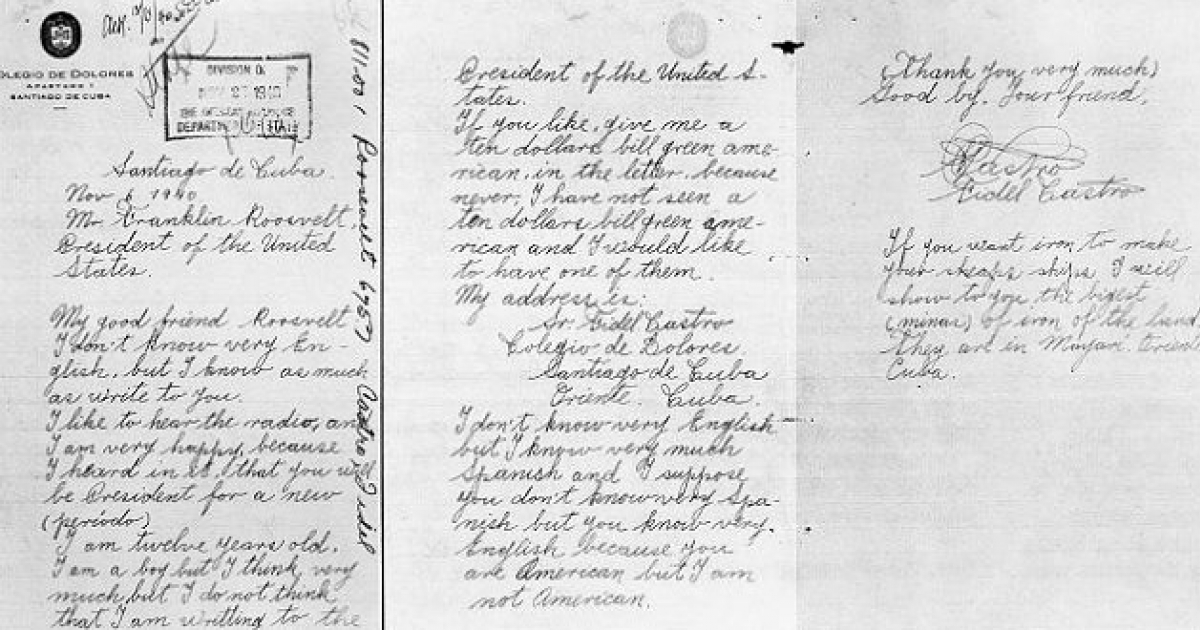 COLEGIO DE DOLORES
APARTADO 1
SANTIAGO DE CUBA
DIVISION O
NOV 27 1940
DEPARTMENT OF STATE
811.001 Roosevelt 6957
Castro, Fidel
Santiago de Cuba.
Nov 6 1940
Mr. Franklin Roosvelt,
President of the United
States.
My good friend Roosvelt
I don't know very En-
glish, but I know as much
as write to you.
I like to hear the radio, and
I am very happy, because
I heard in it, that you will
be President for a new
(periodo)
I am twelve years old.
I am a boy but I think very
much, but I do not think
that I am writting to the
President of the United S-
tates.
If you like, give me a
ten dollars bill green ame-
rican, in the letter, because
never, I have not seen a
ten dollars bill green ame-
rican and I would like
to have one of them.
My address is:
Sr. Fidel Castro
Colegio de Dolores.
Santiago de Cuba
Oriente. Cuba.
I don't know very English
but I know very much
Spanish and I suppose
you don't know very Spa-
nish but you know very
English because you
are American but I am
not American.
(Thank you very much)
Good by. Your friend,
FCastro
Fidel Castro
If you want iron to make
your ships I will
show to you the bigest
(minas) of iron of the land
They are in Mayari. Oriente
Cuba.